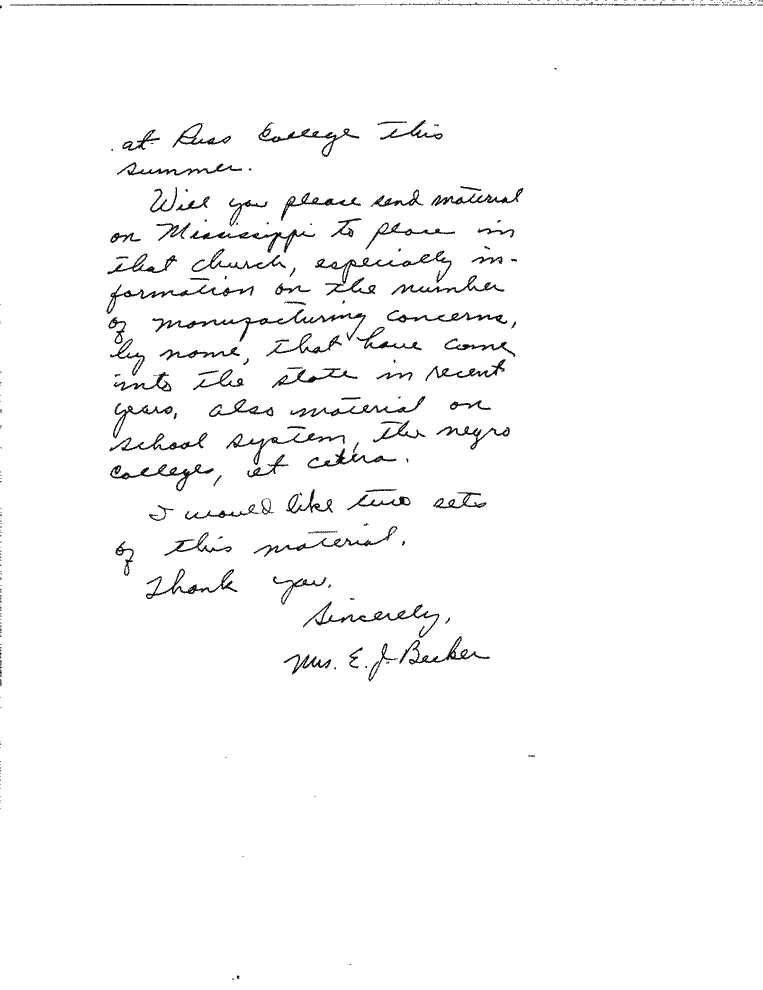 at Russ College this
summer.
Will you please send material
on Mississippi to place in
that church, especially in-
formation on the number
of manufacturing concerns,
by name, that have come
into the state in recent
years, also material on
school system, the negro
colleges, et cetera.
I would like two sets
of this material.
Thank you.
Sincerely,
Mrs. E. J. Becker